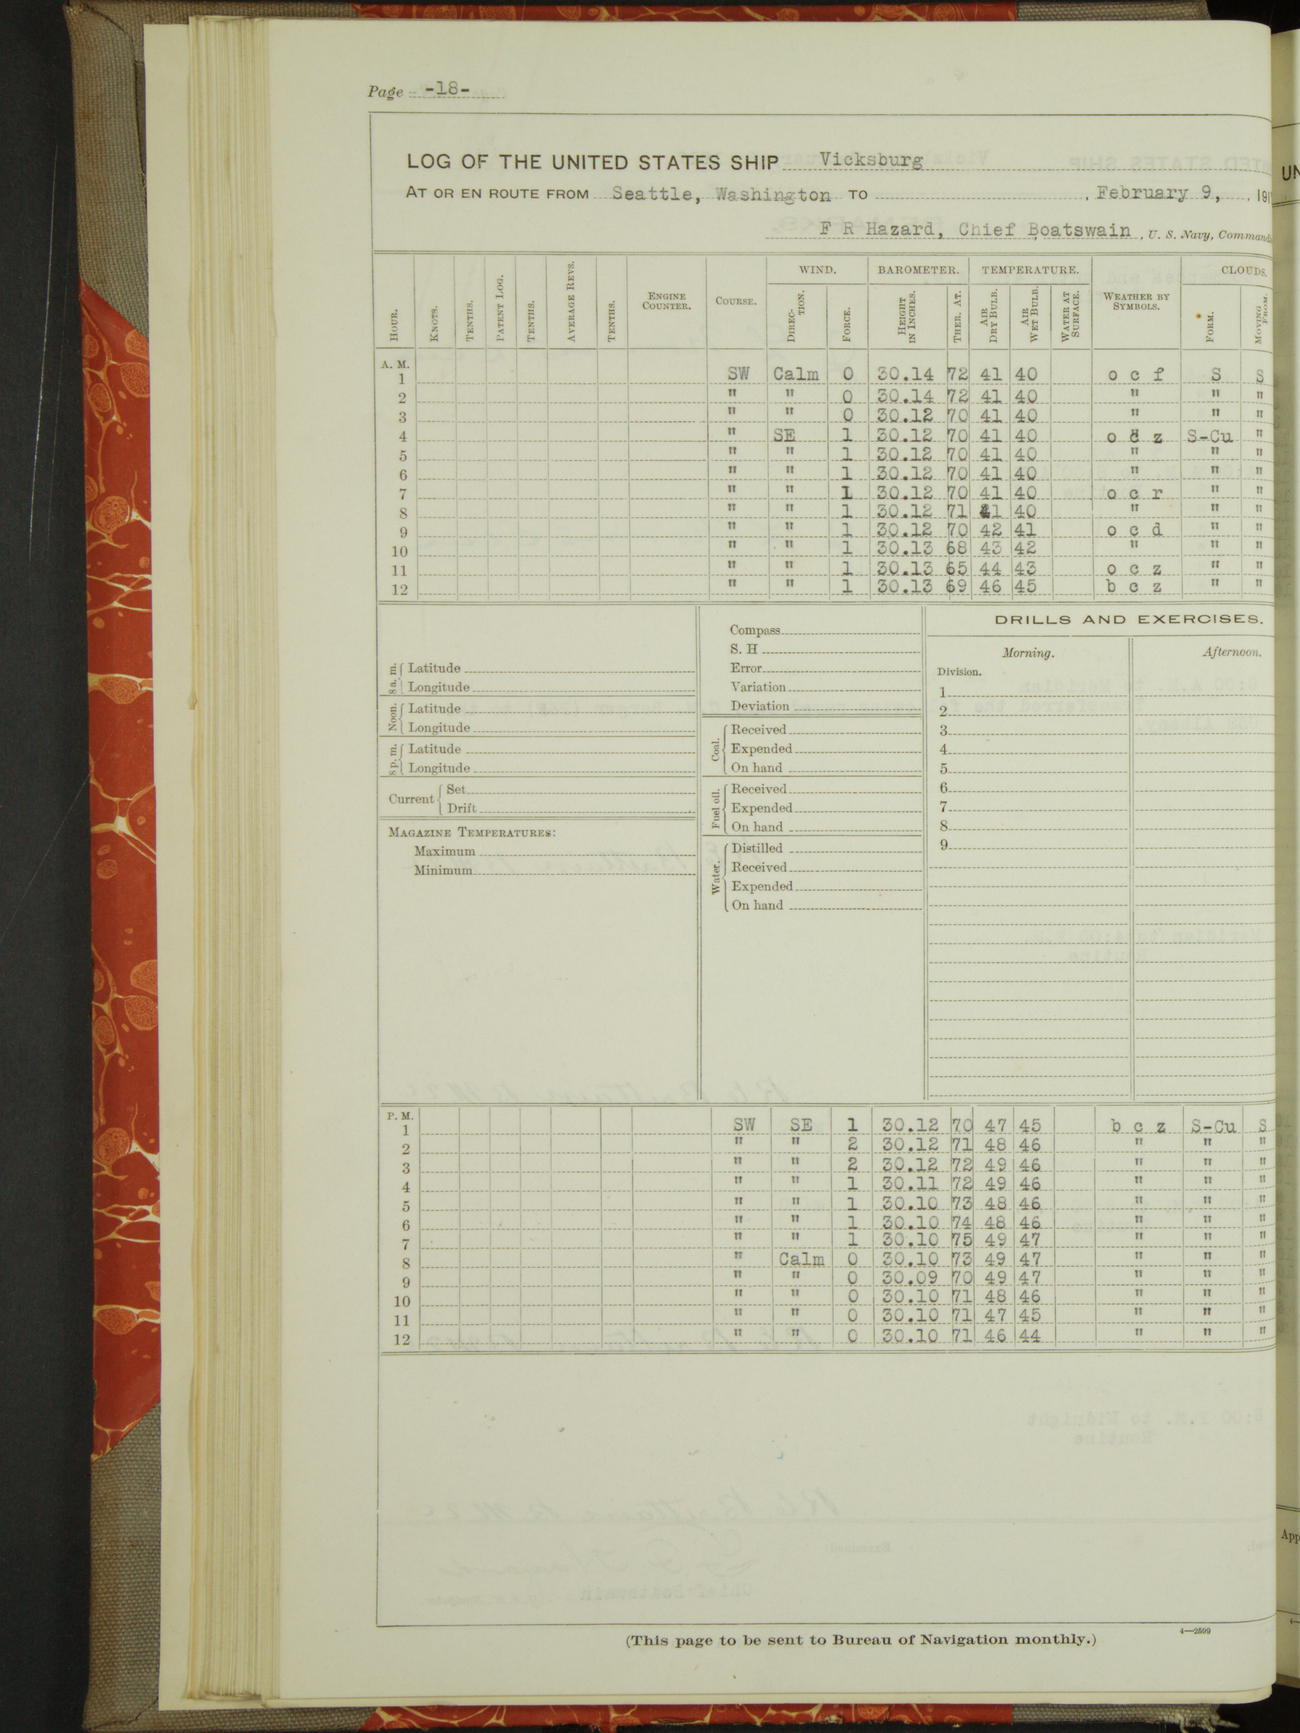 Page -18-
LOG OF THE UNITED STATES SHIP Vicksburg
AT OR EN ROUTE FROM Seattle, Washington TO , February 9, , 191
F R Hazard, Chief Boatswain , U. S. Navy, Command
HOUR. KNOTS. TENTHS. PATENT LOG. TENTHS. AVERAGE REVS. TENTHS. ENGINE COUNTER. COURSE. WIND. DIREC-TION. FORCE. BAROMETER. HEIGHT IN INCHES. THER. AT. TEMPERATURE. AIR DRY BULB. AIR WET BULB. WATER AT SURFACE. WEATHER BY SYMBOLS. CLOUDS. FORM. MOVING FROM.
A. M.
1 SW Calm 0 30.14 72 41 40 o c f S S
2 " " 0 30.14 72 41 40 " " "
3 " " 0 30.12 70 41 40 " " "
4 " SE 1 30.12 70 41 40 o c z S-Cu "
5 " " 1 30.12 70 41 40 " " "
6 " " 1 30.12 70 41 40 " " "
7 " " 1 30.12 70 41 40 o c r " "
8 " " 1 30.12 71 41 40 " " "
9 " " 1 30.12 70 42 41 o c d " "
10 " " 1 30.13 68 43 42 " " "
11 " " 1 30.13 65 44 43 o c z " "
12 " " 1 30.13 69 46 45 b c z " "
8 a. m. Latitude
Longitude
Noon. Latitude
Longitude
8 p. m. Latitude
Longitude
Current Set
Drift
MAGAZINE TEMPERATURES:
Maximum
Minimum
Compass
S. H
Error
Variation
Deviation
Coal. Received
Expended
On hand
Fuel oil. Received
Expended
On hand
Water. Distilled
Received
Expended
On hand
DRILLS AND EXERCISES.
Morning. Afternoon.
Division.
1
2
3
4
5
6
7
8
9
P. M.
1 SW SE 1 30.12 70 47 45 b c z S-Cu S
2 " " 2 30.12 71 48 46 " " "
3 " " 2 30.12 72 49 46 " " "
4 " " 1 30.11 72 49 46 " " "
5 " " 1 30.10 73 48 46 " " "
6 " " 1 30.10 74 48 46 " " "
7 " " 1 30.10 75 49 47 " " "
8 " Calm 0 30.10 73 49 47 " " "
9 " " 0 30.09 70 49 47 " " "
10 " " 0 30.10 71 48 46 " " "
11 " " 0 30.10 71 47 45 " " "
12 " " 0 30.10 71 46 44 " " "
(This page to be sent to Bureau of Navigation monthly.)
4—2599
UN
App